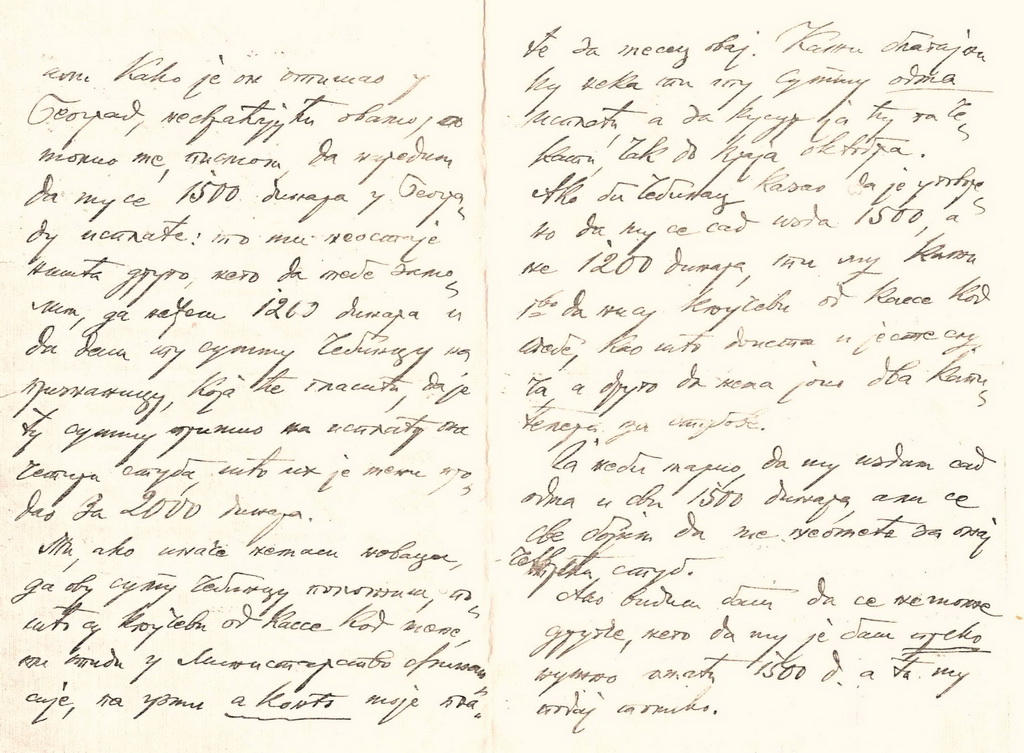 Како је он отишао у
Београд, несвраћајући овамо,
молио ме, писмом, да наредим
да му се 1500 динара у Београ-
ду исплате: то ми неостаје
ништа друго, него да тебе замо-
лим, да нађеш 1200 динара и
да даш ту сумму Чебинцу на
признаницу, која ће гласити, да је
ту сумму примио на исплату она
четири стуба, што их је мени про-
дао за 2000 динара.
Ти, ако иначе немаш новаца,
да ову суму Чебинцу положиш, по-
што су кључеви од кассе код мене,
ти отиди у Министарство финан-
сије, па узми а конто моје пла-
те за месец овај. Кажи благајни
ку нека ти ту сумму одма
исплати, а да кусур ја ћу па че-
кати, чак до краја октобра.
Ако би Чебинац казао да је углавље-
но да му се сад изда 1500, а
не 1200 динара, ти му кажи
1во да ни су кључеви од кассе код
тебе, као што доиста и јесте слу
чај, а друго да нема још два капи-
тела за стубове.
Ја неби марио, да му издам сад
одма и сви 1500 динара, али се
све бојим да ме неомете за онај
четврти, стуб.
Ако видиш баш да се неможе
друкче, него да му је баш преко
нужно имати 1500 д. а ти му
подај толико.